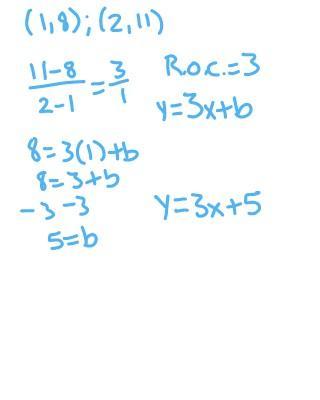 (1,8); (2,11)
11-8/2-1 = 3/1
R.o.c.=3
y=3x+b
8=3(1)+b
8=3+b
-3 -3
5=b
y=3x+5